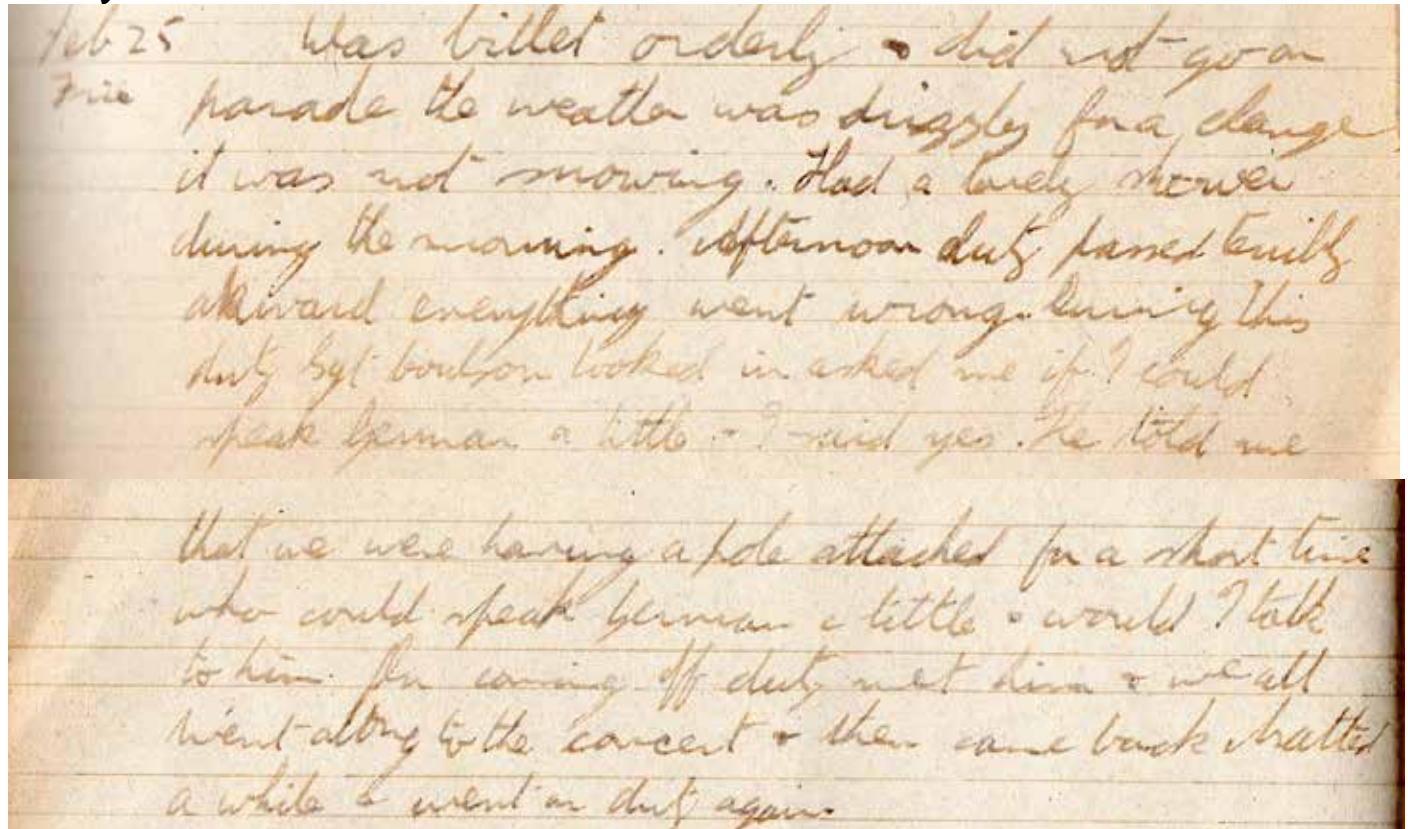 Feb 25 Was billet orderly & did not go on
Frie parade the weather was drizzley for a change
it was not snowing. Had a lovely shower
during the morning. Afternoon duty passed terribly
akward everything went wrong. During this
duty Sgt looked in asked me if I could
speak German a little & I said yes. He told me
that we were having a pole attached for a short time
who could speak German a little & would I talk
to him. coming off duty met him & we all
went along to the concert & then came back chatted
a while & went on duty again